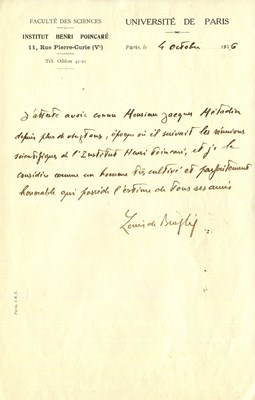 FACULTÉ DES SCIENCES
UNIVERSITÉ DE PARIS
INSTITUT HENRI POINCARÉ
11, Rue Pierre-Curie (Vᵉ)
Paris, le 4 octobre 1956
Tél. Odéon 42-10
J'atteste avoir connu Monsieur Jacques Métadier
depuis plus de vingt ans, époque où il suivait les réunions
scientifiques de l'Institut Henri Poincaré, et je le
considère comme un homme très cultivé et parfaitement
honorable qui possède l'estime de tous ses amis
Louis de Broglie